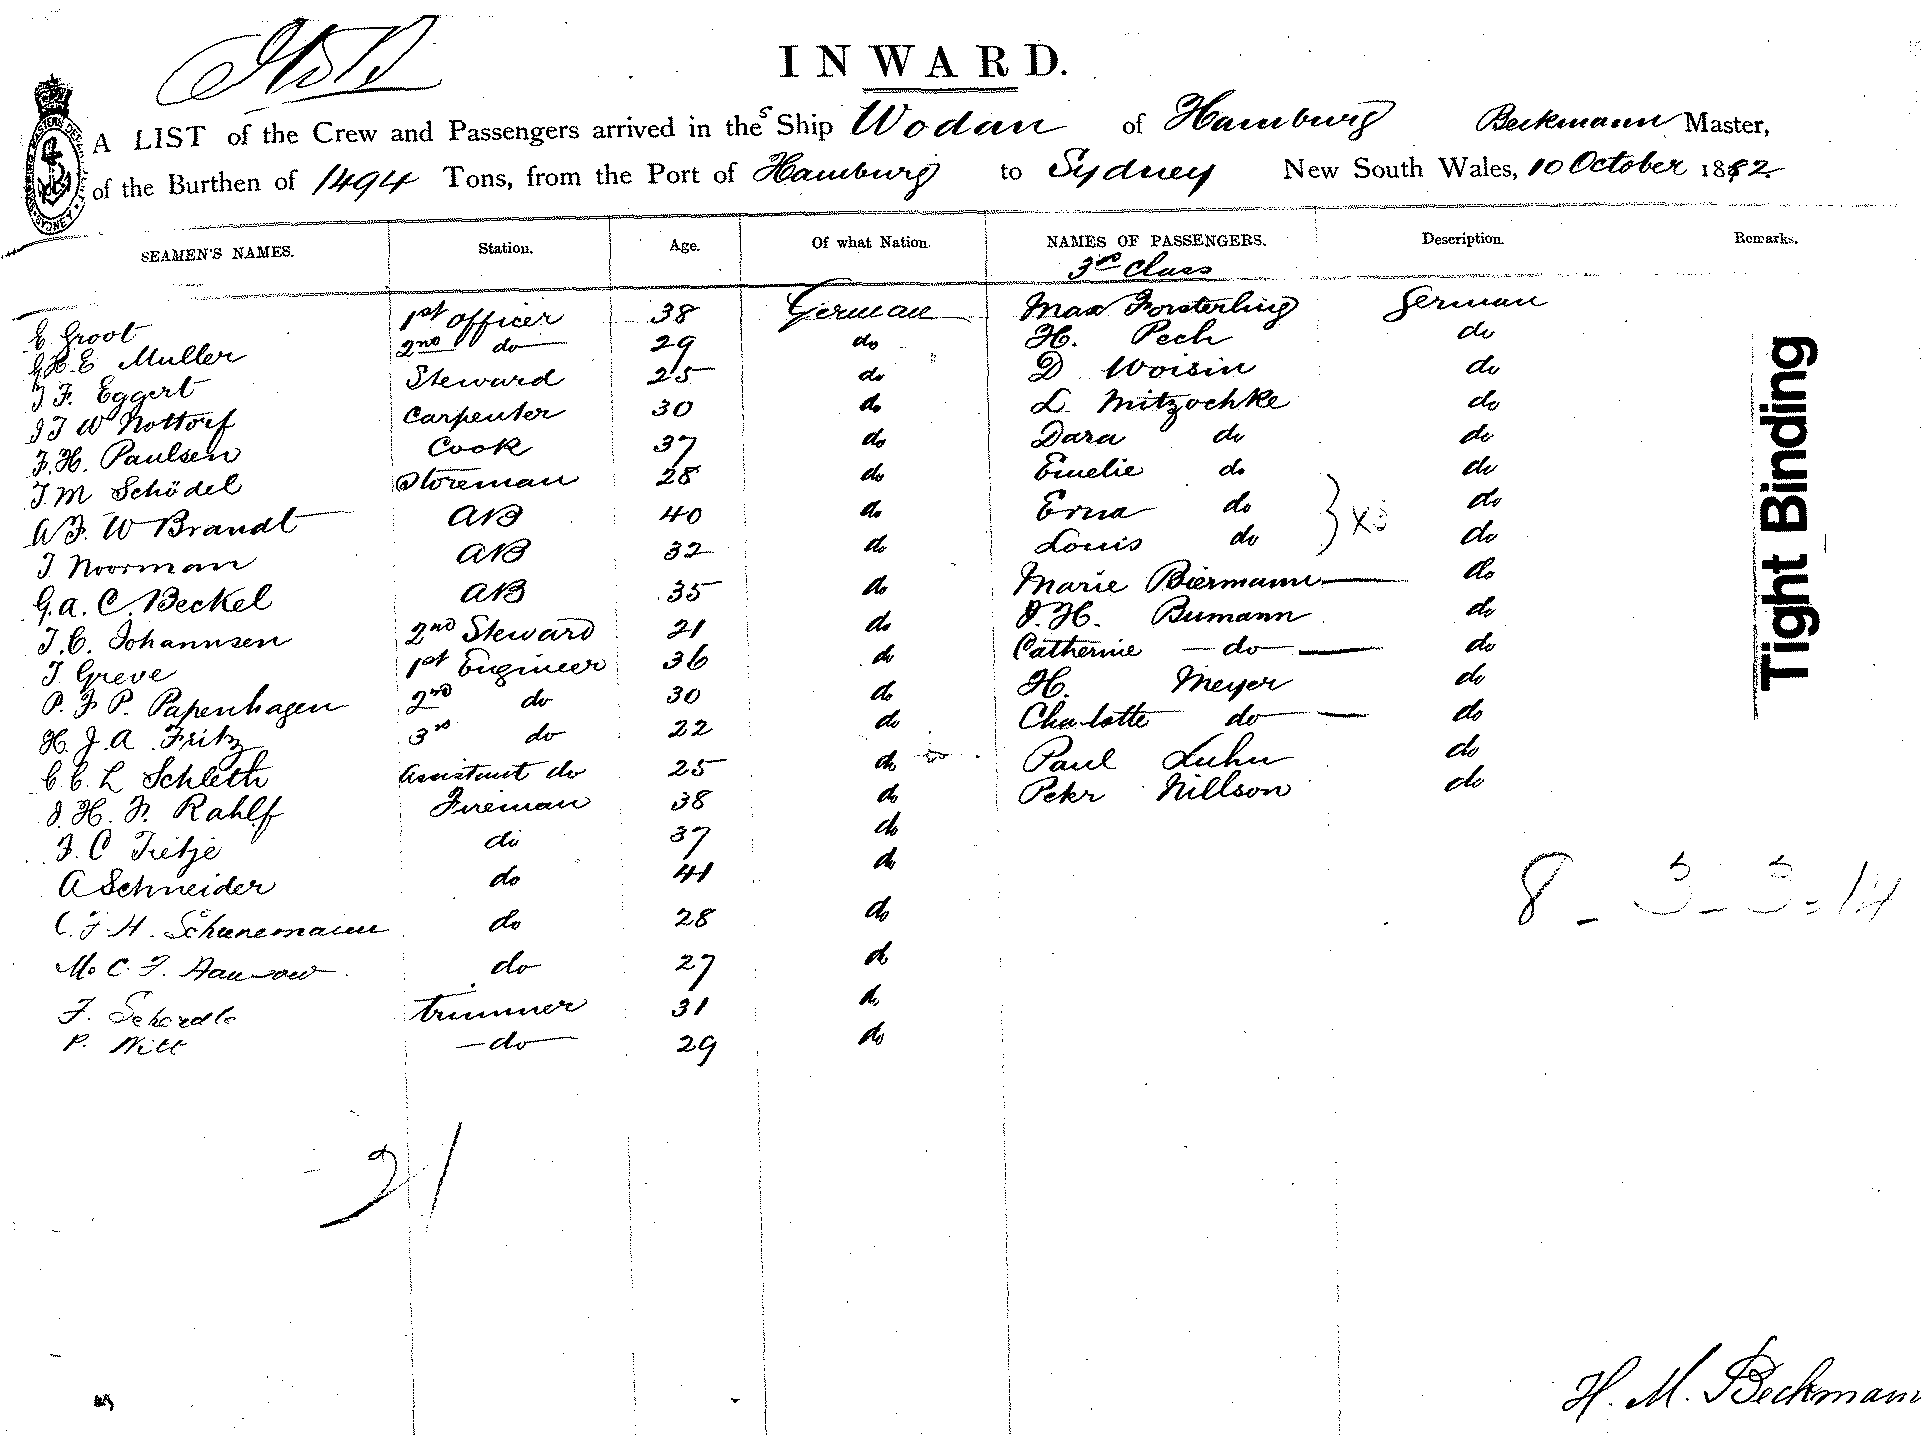 INWARD.
A LIST of the Crew and Passengers arrived in the SShip Wodan of Hamburg Beckmann Master,
of the Burthen of 1494 Tons, from the Port of Hamburg to Sydney New South Wales, 10 October 1882
SEAMEN'S NAMES. Station. Age. Of what Nation. NAMES OF PASSENGERS. Description. Remarks.
3rd Class
C Groot 1st Officer 38 German Max Forsterling German
H. E Muller 2nd do 29 do H. Pech do
J F. Eggert Steward 25 do D Woisin do
J J W Nottorf Carpenter 30 do L. Mitzochke do
F. H. Paulsen Cook 37 do Dara do do
J M Schödel Storeman 28 do Emelie do do
A F. W Brandt AB 40 do Erna do do
J Noorman AB 32 do Louis do do
X3
G. A. C. Beckel AB 35 do Marie Biermann do
J. C. Johannsen 2nd Steward 21 do J. H. Bumann do
J Greve 1st Engineer 36 do Catherine do do
P. F P. Papenhagen 2nd do 30 do H. Meyer do
H. J. A Fritz 3rd do 22 do Charlotte do do
C C. L Schleth Assistant do 25 do do Paul Luhn do
J. H. F. Rahlf Fireman 38 do Peter Nillson do
F. C Tietje do 37 do
A Schneider do 41 do
C. F. H. Schunemann do 28 do
8 - 3 - 3 = 14
M. C. F. do 27 do
F. trimmer 31 do
P. Witt do 29 do
21
H. M. Beckmann
Tight Binding